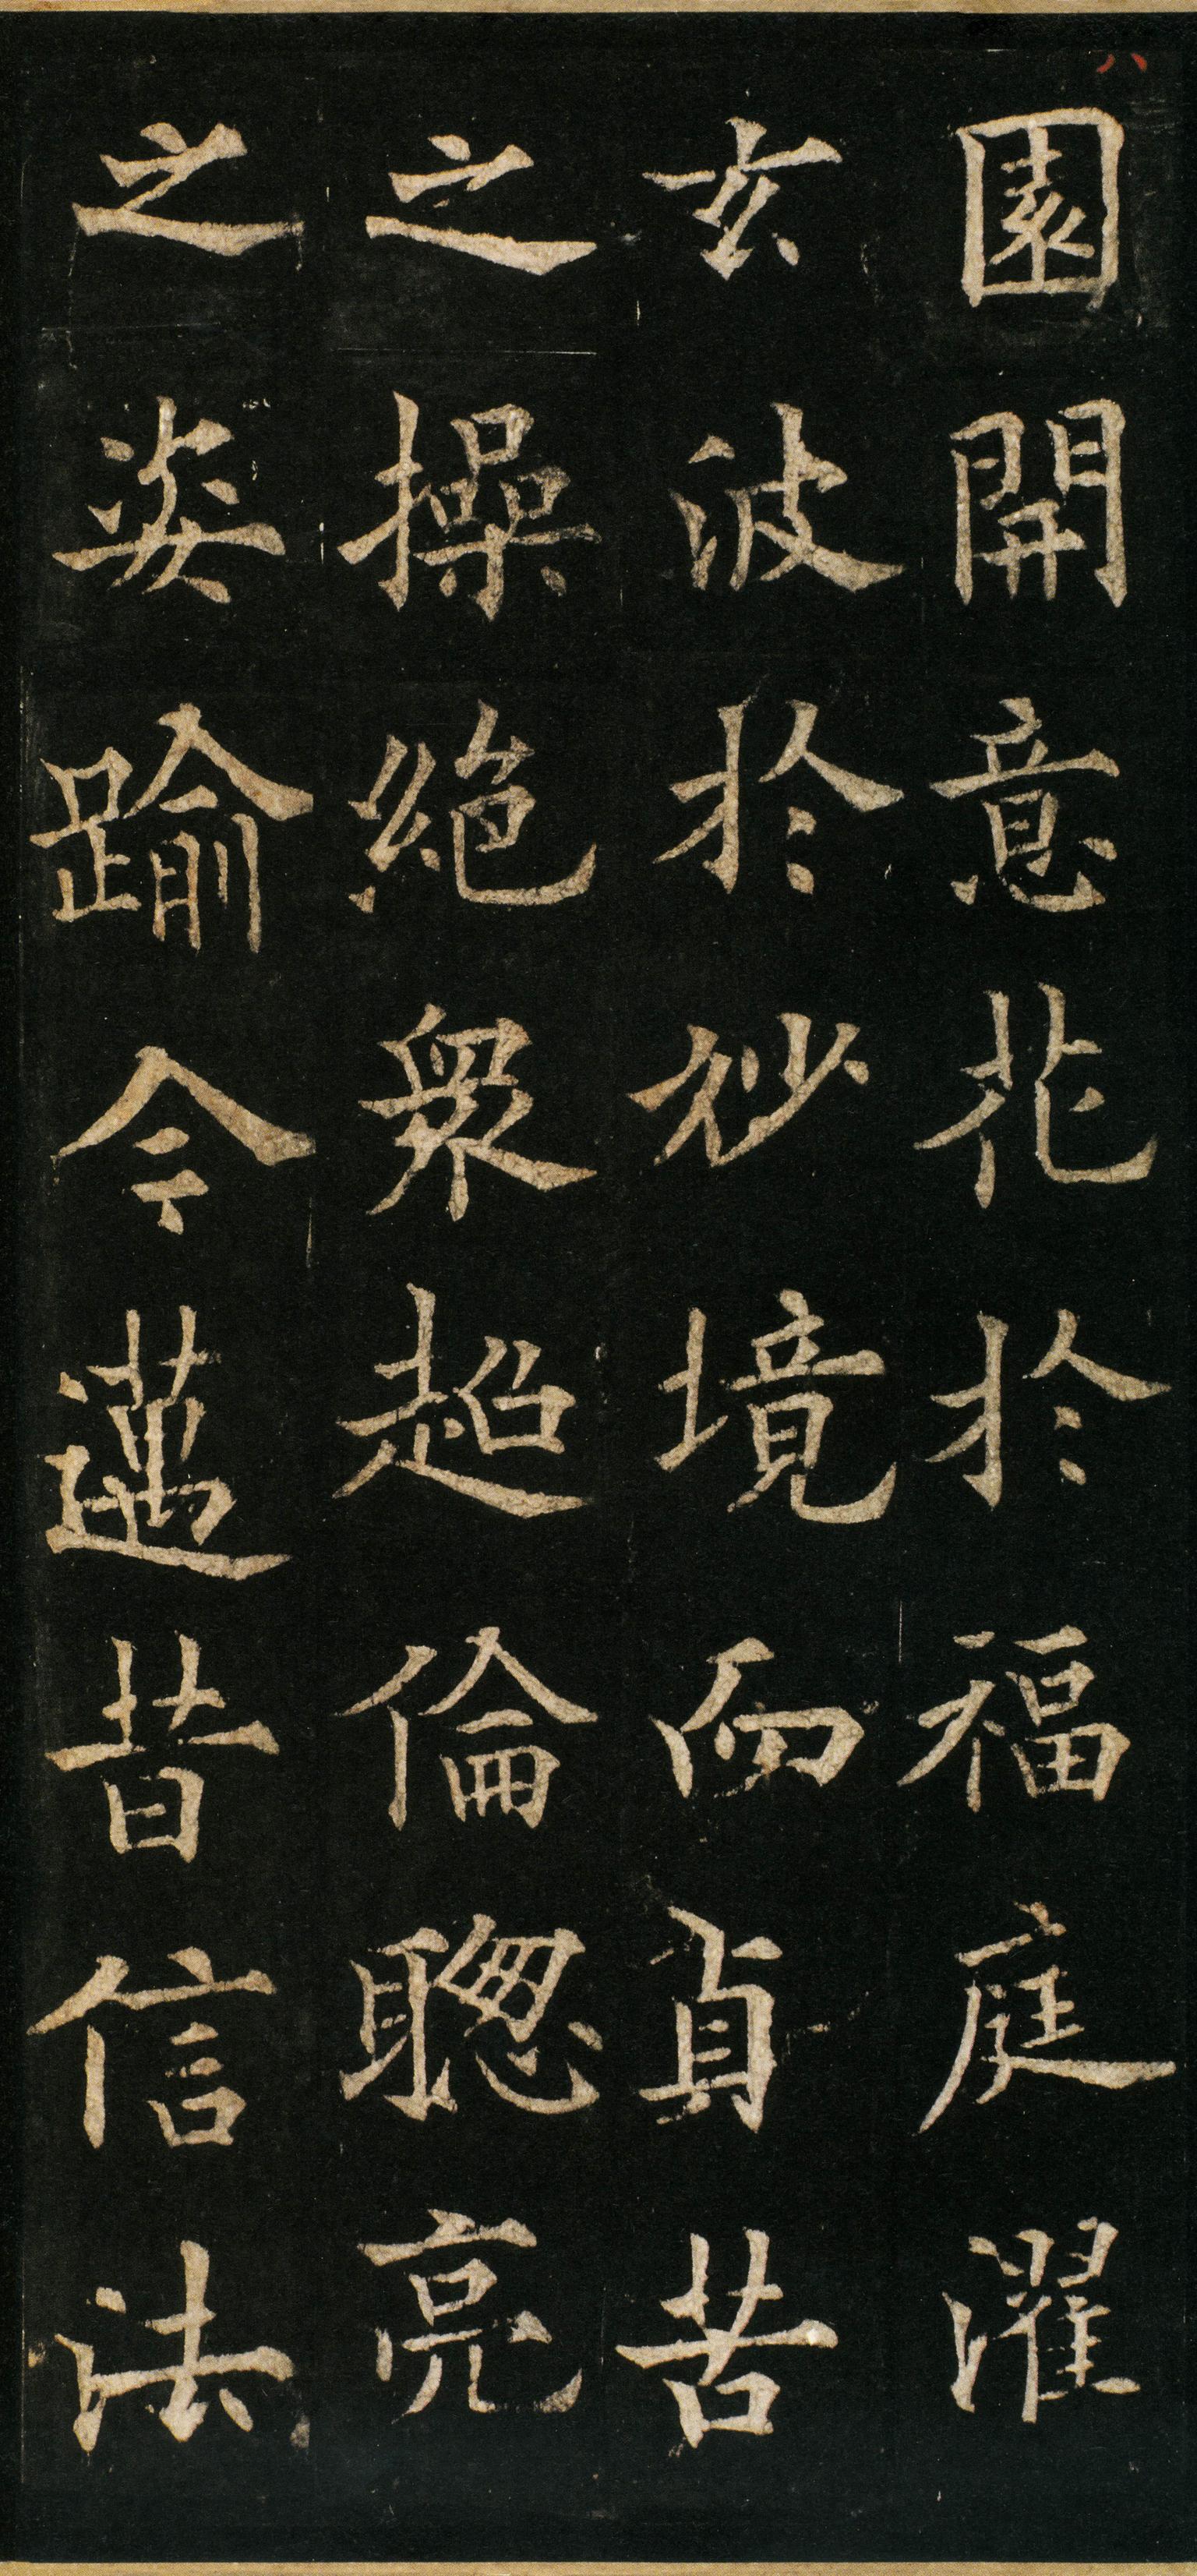 園開意花於福庭濯
玄波於妙境而貞苦
之操絶衆超倫聰亮
之姿踰今邁昔信法